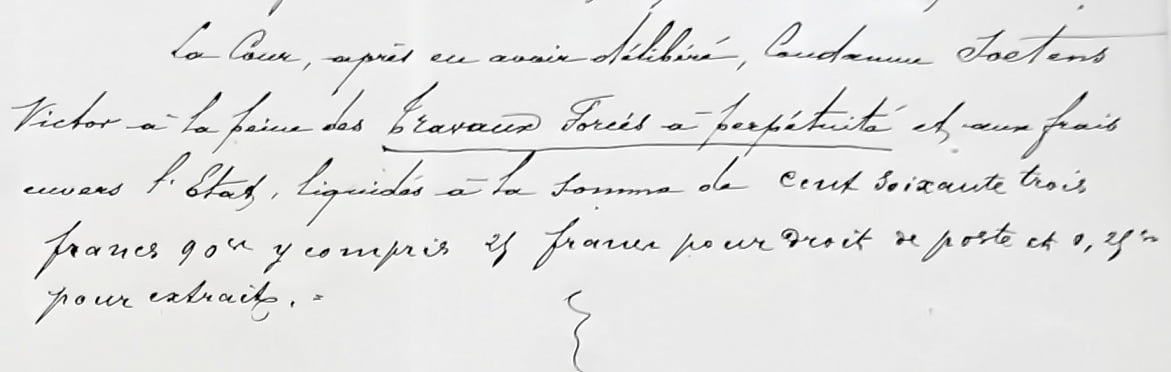 La Cour, après en avoir délibéré, Condamne Soetens
Victor à la peine des Travaux Forcés à perpétuité et aux frais
envers l'Etat, liquidés à la somme de Cent soixante trois
francs 90 cs y compris 25 francs pour droit de poste et 0,25 cs
pour extrait. =